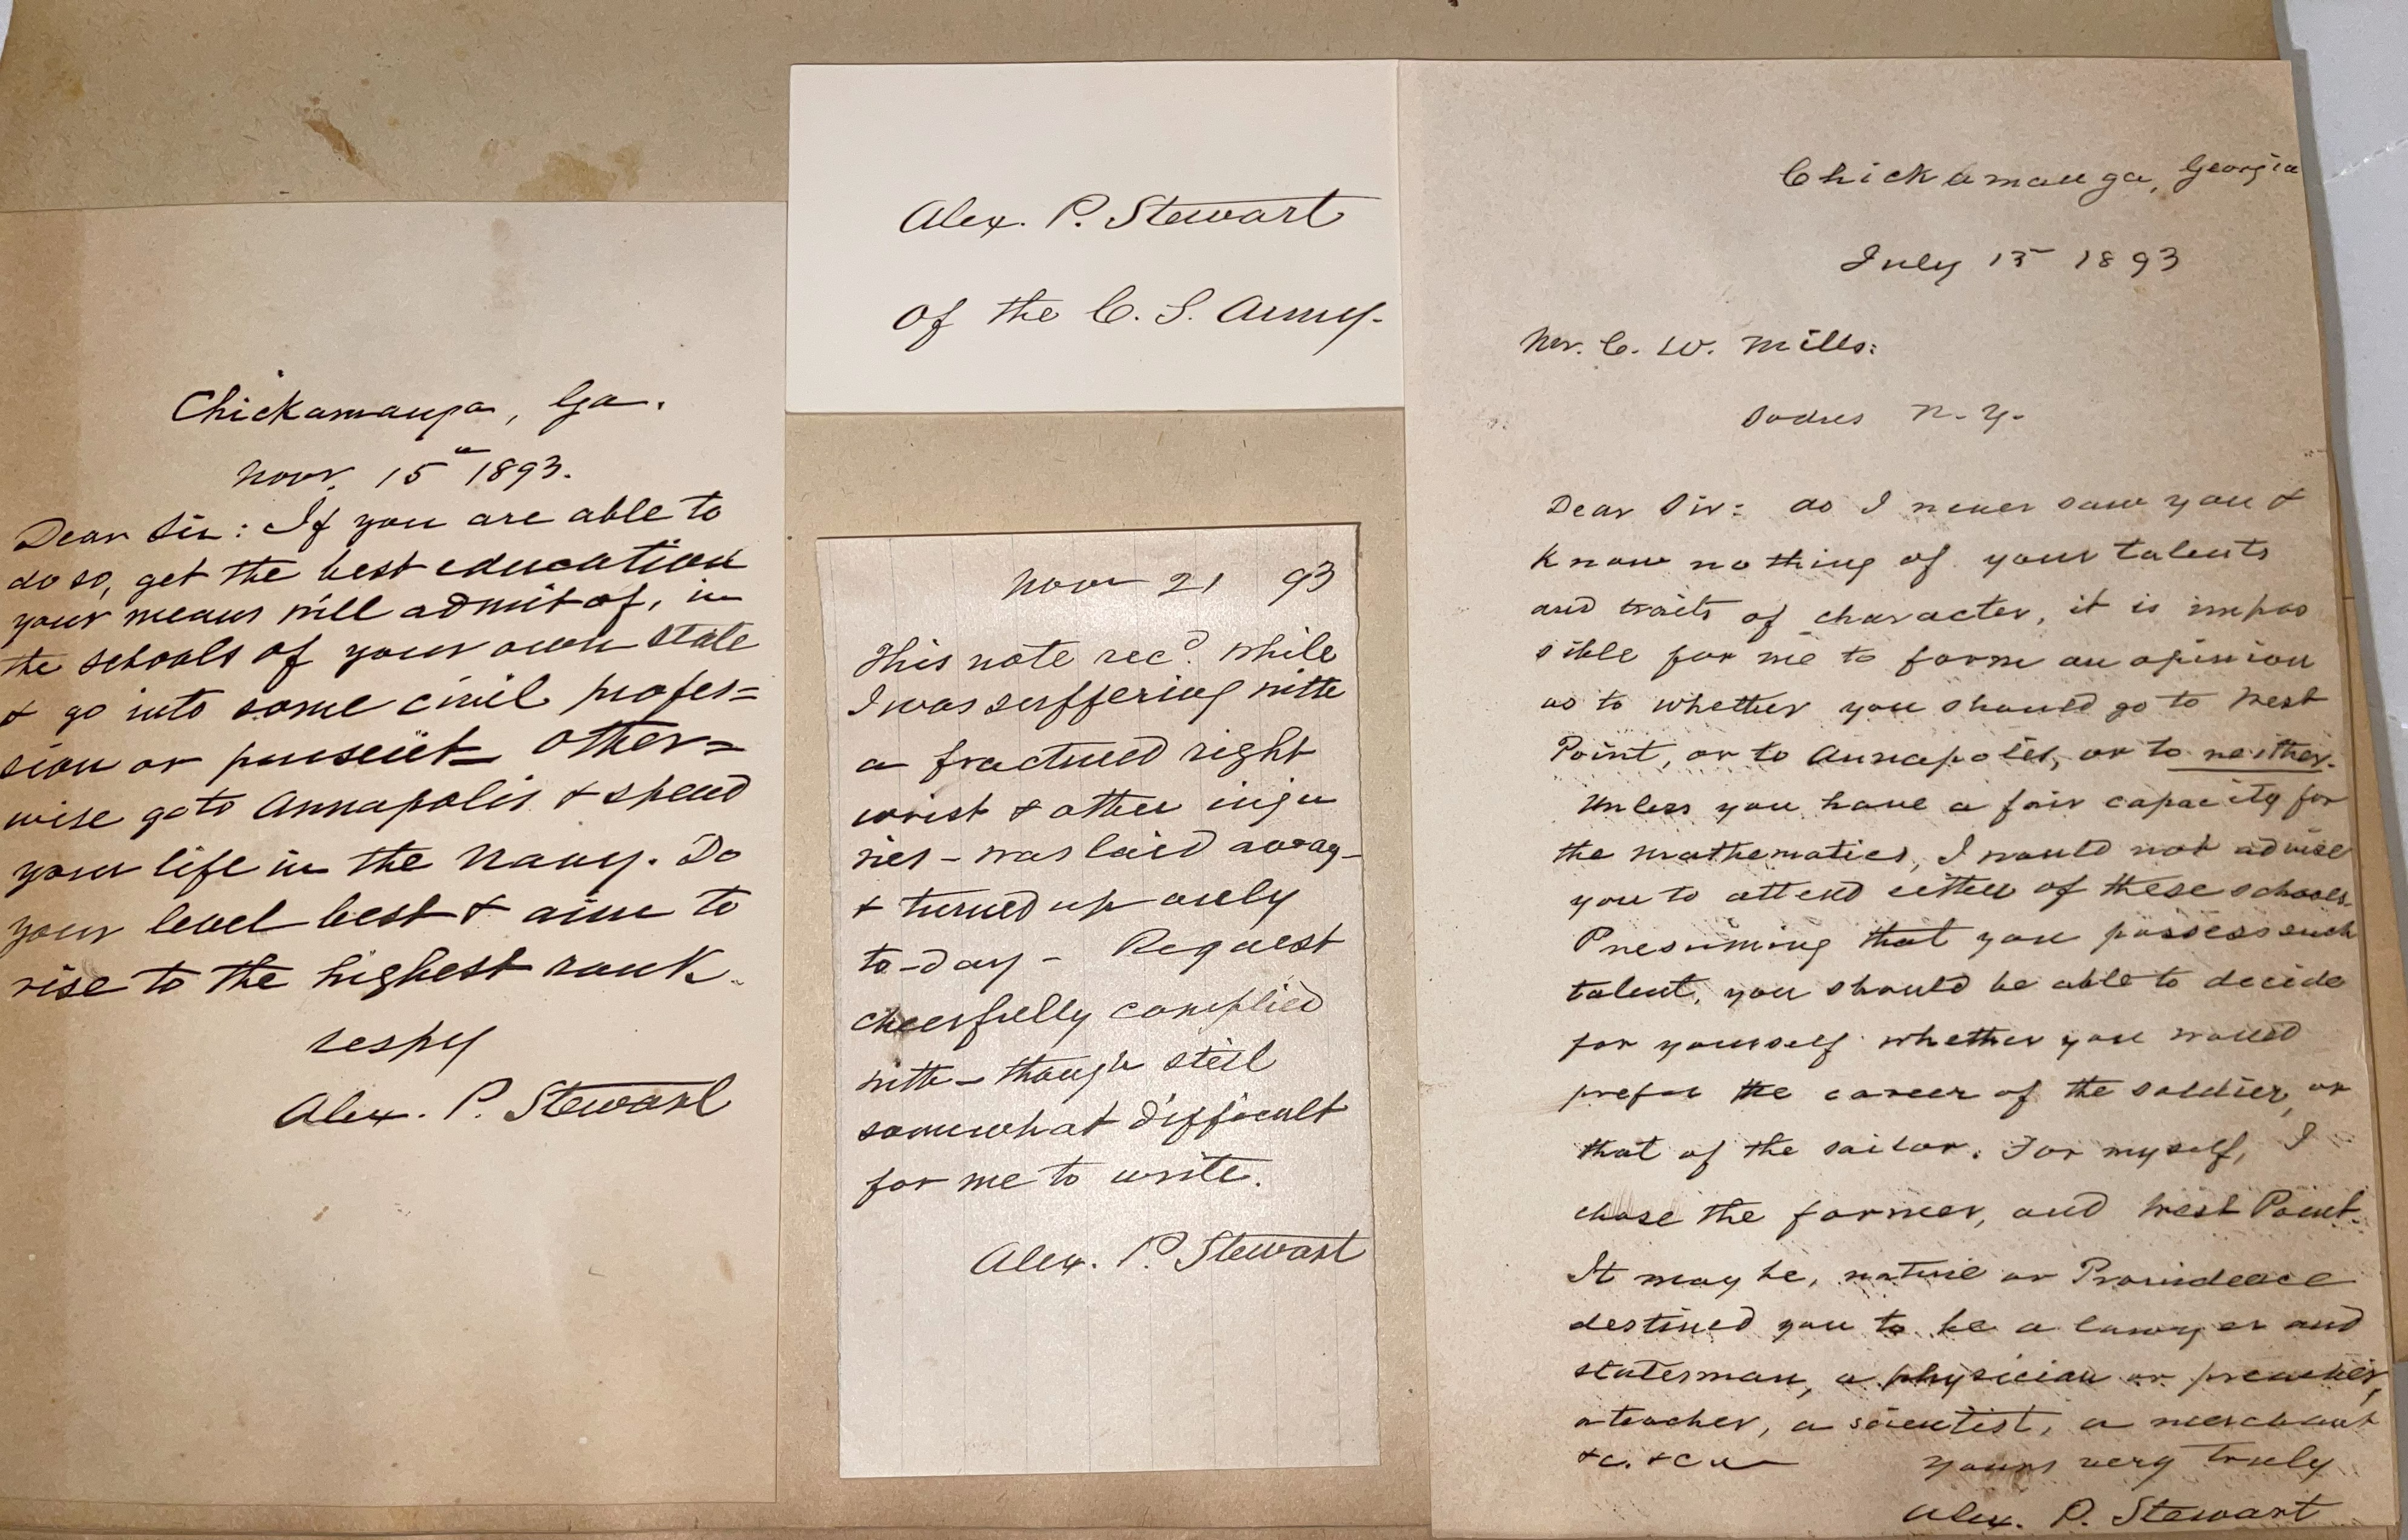 Chickamauga, Ga.
Novr. 15th 1893.
Dear Sir: If you are able to
do so, get the best education
your means will admit of, in
the schools of your own State
& go into some civil profes=
sion or pursuit_ Other=
wise go to Annapolis & spend
your life in the Navy. Do
your level best & aim to
rise to the highest rank.
respy
Alex. P. Stewart
Alex. P. Stewart
of the C. S. Army.
Nov 21 93
This note recd. while
I was suffering with
a fractured right
wrist & other inju
ries - was laid away -
& turned up only
to-day - Request
cheerfully complied
with - though still
somewhat difficult
for me to write.
Alex. P. Stewart
Chickamauga, Georgia
July 15 1893
Mr. C. W. Mills:
Sodus N. Y.
Dear Sir: as I never saw you &
know nothing of your talents
and traits of character, it is impos
sible for me to form an opinion
as to whether you should go to West
Point, or to Annapolis, or to neither.
Unless you have a fair capacity for
the mathematics, I would not advise
you to attend either of these schools.
Presuming that you possess such
talent, you should be able to decide
for yourself whether you would
prefer the career of the soldier, or
that of the sailor. For myself, I
chose the former, and West Point.
It may be, nature or Providence
destined you to be a lawyer and
statesman, a physician or preacher,
a teacher, a scientist, a merchant
&c. &c
yours very truly
Alex. P. Stewart